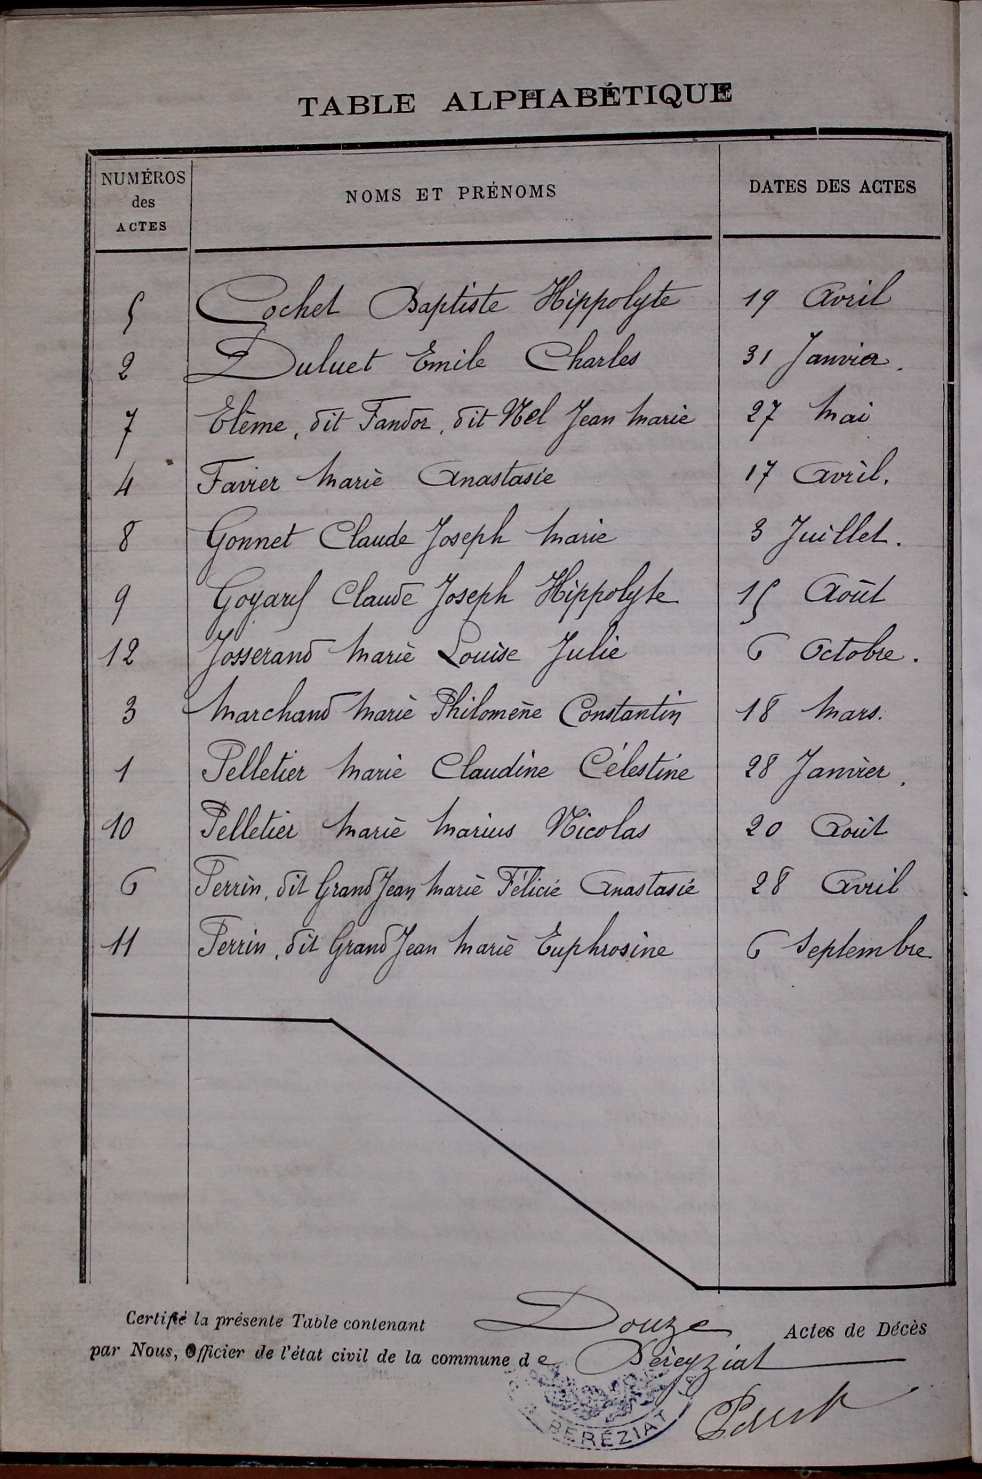 TABLE ALPHABÉTIQUE
NUMÉROS des ACTES NOMS ET PRÉNOMS DATES DES ACTES
5 Cochet Baptiste Hippolyte 19 Avril
2 Duluet Emile Charles 31 Janvier.
7 Elème, dit Fandor, dit Nel Jean Marie 27 Mai
4 Favier Marie Anastasie 17 Avril.
8 Gonnet Claude Joseph Marie 3 Juillet.
9 Goyard Claude Joseph Hippolyte 15 Août
12 Josserand Marie Louise Julie 6 Octobre.
3 Marchand Marie Philomène Constantin 18 Mars.
1 Pelletier Marie Claudine Célestine 28 Janvier.
10 Pelletier Marie Marius Nicolas 20 Août
6 Perrin, dit Grand Jean Marie Félicie Anastasie 28 Avril
11 Perrin, dit Grand Jean Marie Euphrosine 6 Septembre
Certifié la présente Table contenant Douze Actes de Décès
par Nous, Officier de l'état civil de la commune de Béreyziat
BÉRÉZIAT